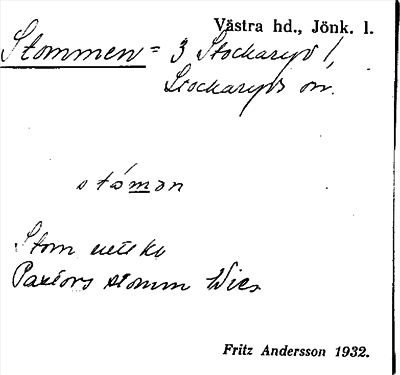 Västra hd., Jönk. l.
Stommen = 3 Stockaryd 1,
Stockaryds sn.
stómən
Stom
Pastors stomm Wies
Fritz Andersson 1932.